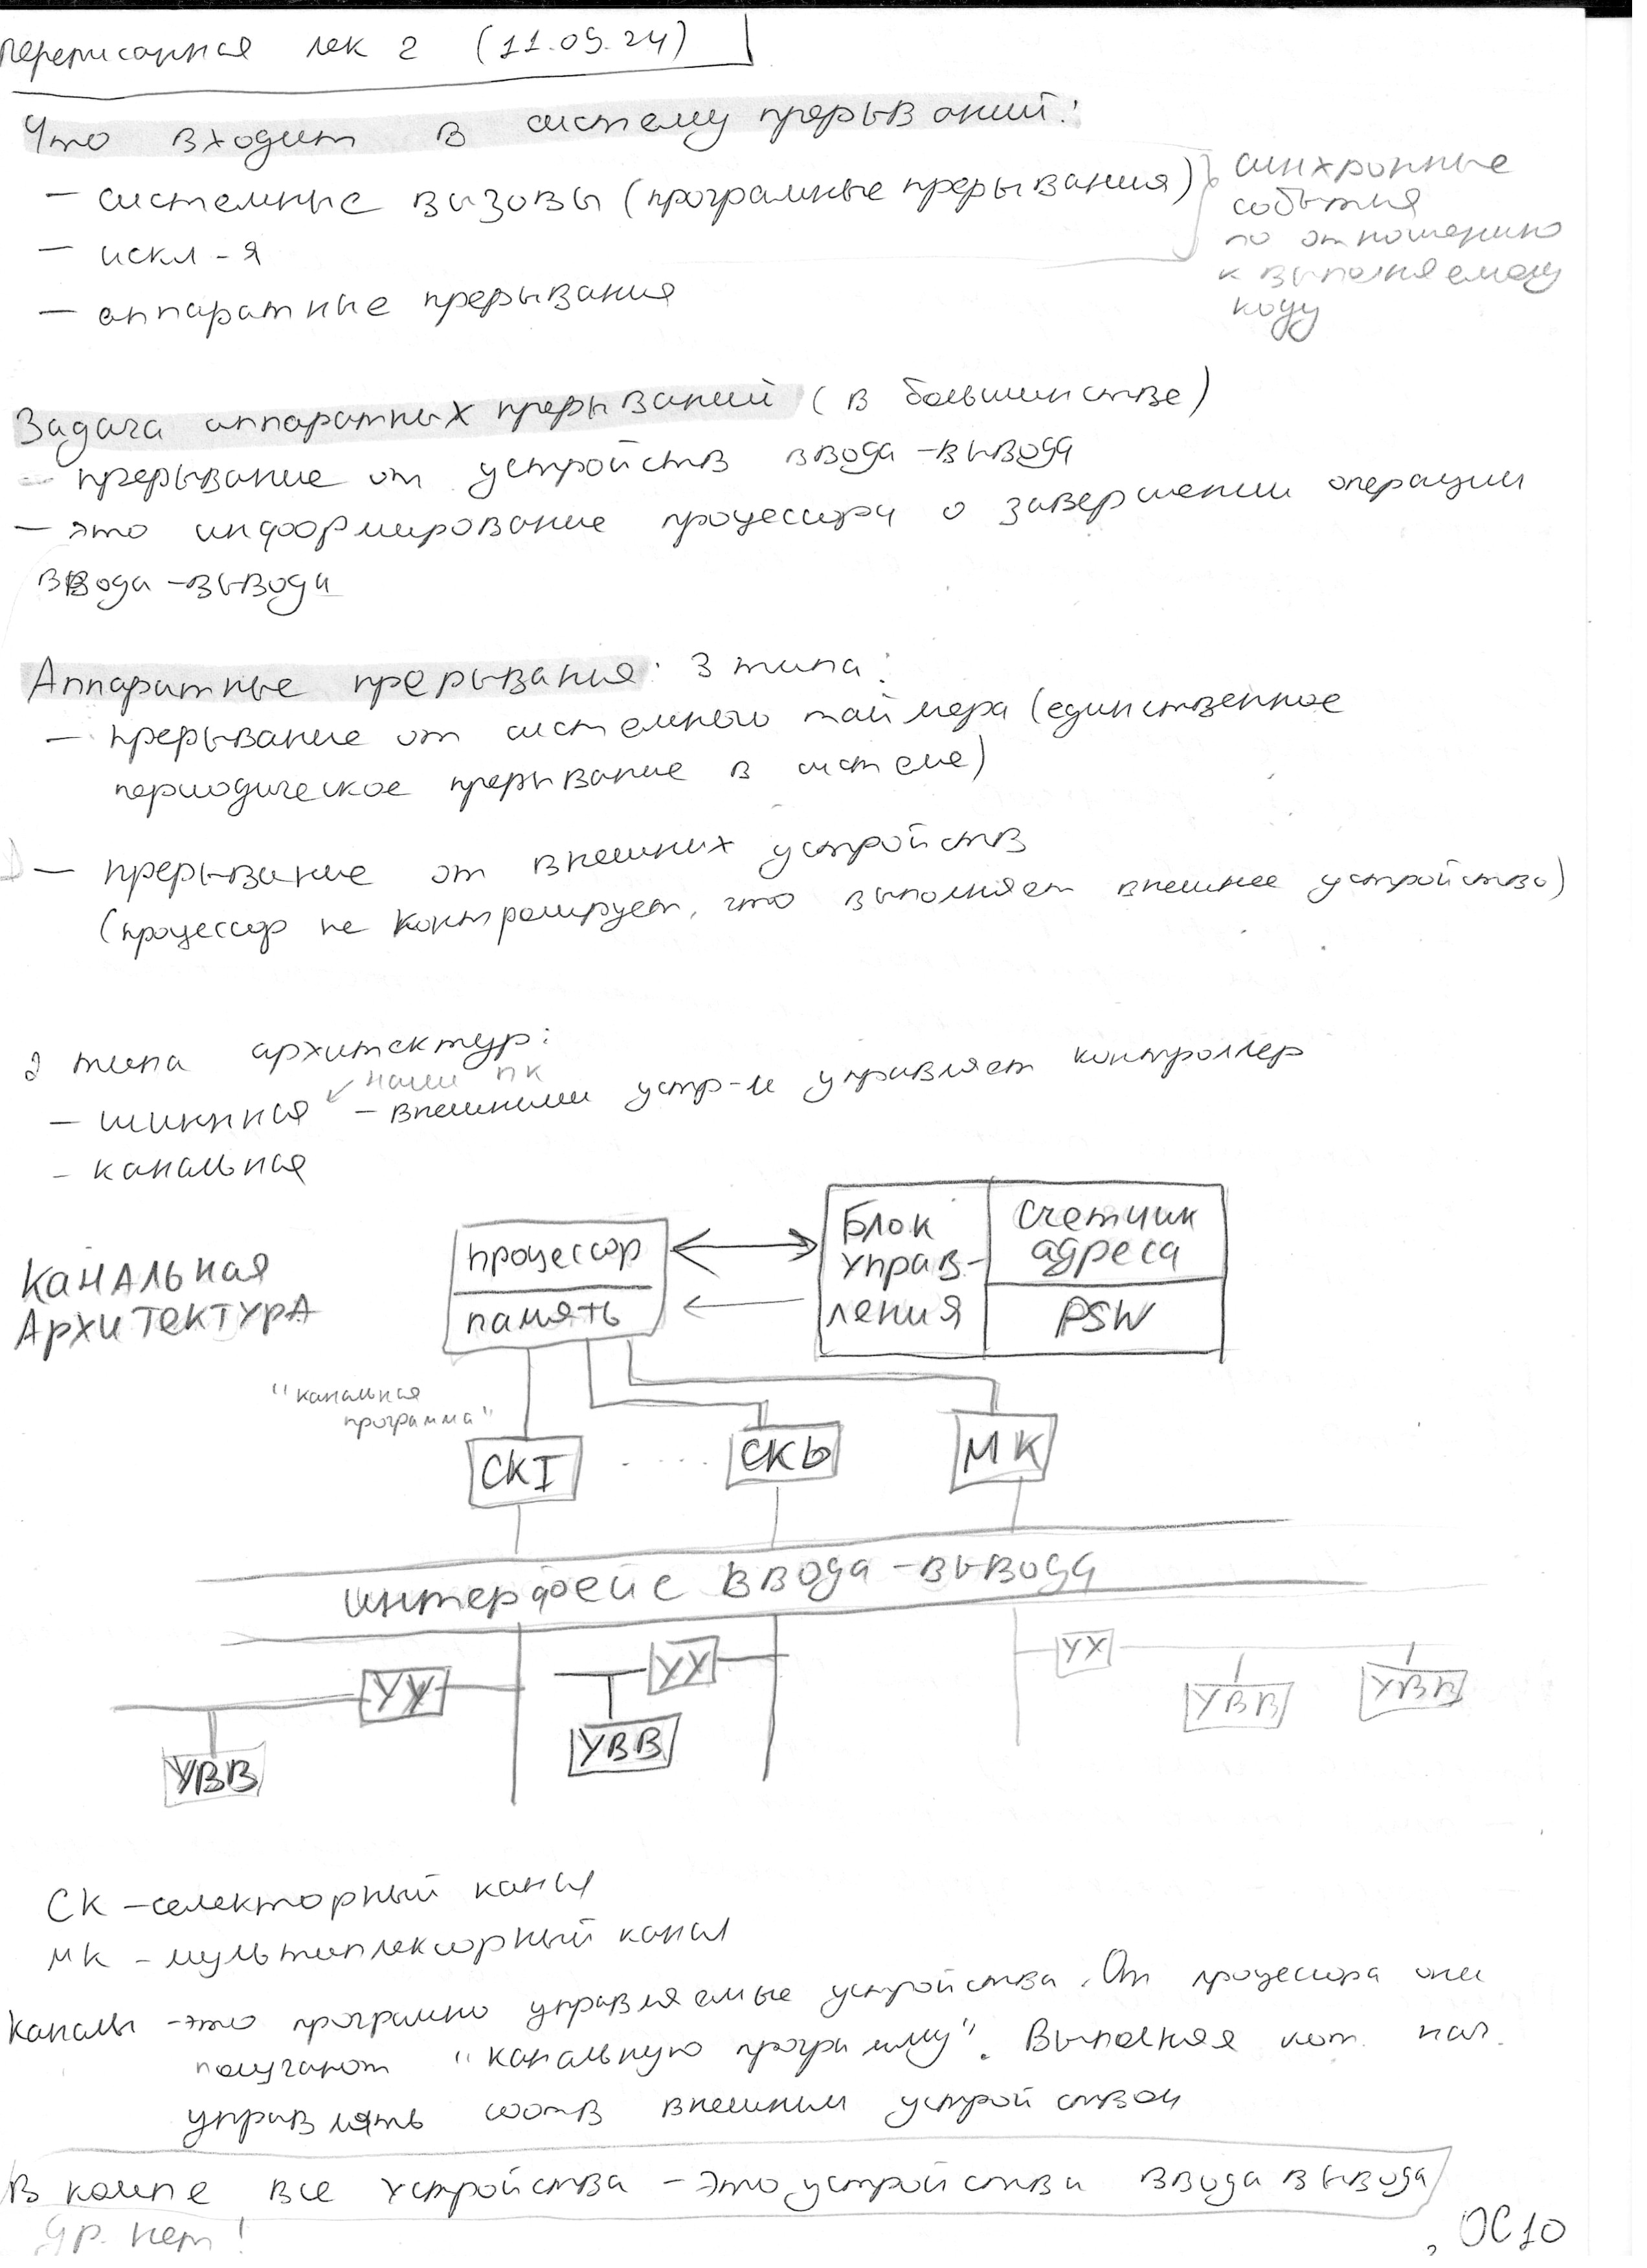 переписанная лек 2 (11.09.24)
Что входит в систему прерываний:
— системные вызовы (програмные прерывания)
— искл-я
— аппаратные прерывания
синхронные
события
по отношению
к выполняемому
коду
Задача аппаратных прерываний (в большинстве)
– прерывание от устройств ввода-вывода
— это информирование процессора о завершении операции
ввода-вывода
Аппаратные прерывания: 3 типа:
— прерывание от системного таймера (единственное
периодическое прерывание в системе)
— прерывание от внешних устройств
(процессор не контролирует, что выполняет внешнее устройство)
2 типа архитектур:
наши пк
— шинная – внешними устр-и управляет контроллер
– канальная
КАНАЛЬНАЯ
АРХИТЕКТУРА
процессор
память
Блок
управ-
ления
Счетчик
адреса
PSW
"канальная
программа"
СК1 ..... СК6 МК
интерфейс ввода-вывода
УУ УУ УУ
УВВ УВВ УВВ УВВ
СК – селекторный канал
МК – мультиплексорный канал
Каналы – это програмно управляемые устройства. От процессора они
получают "канальную программу". Выполняя кот. нач.
управлять соотв внешним устройством
В компе все устройства – это устройства ввода вывода
др. нет!
ОС10